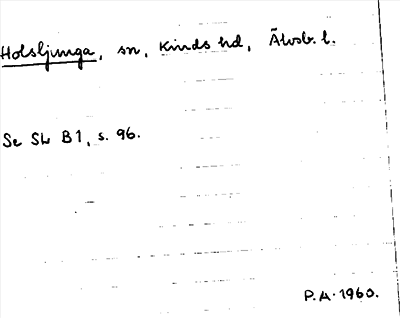 Holsljunga, sn, Kinds hd, Älvsb. l.
Se Sk B1, s. 96.
P.A. 1960.